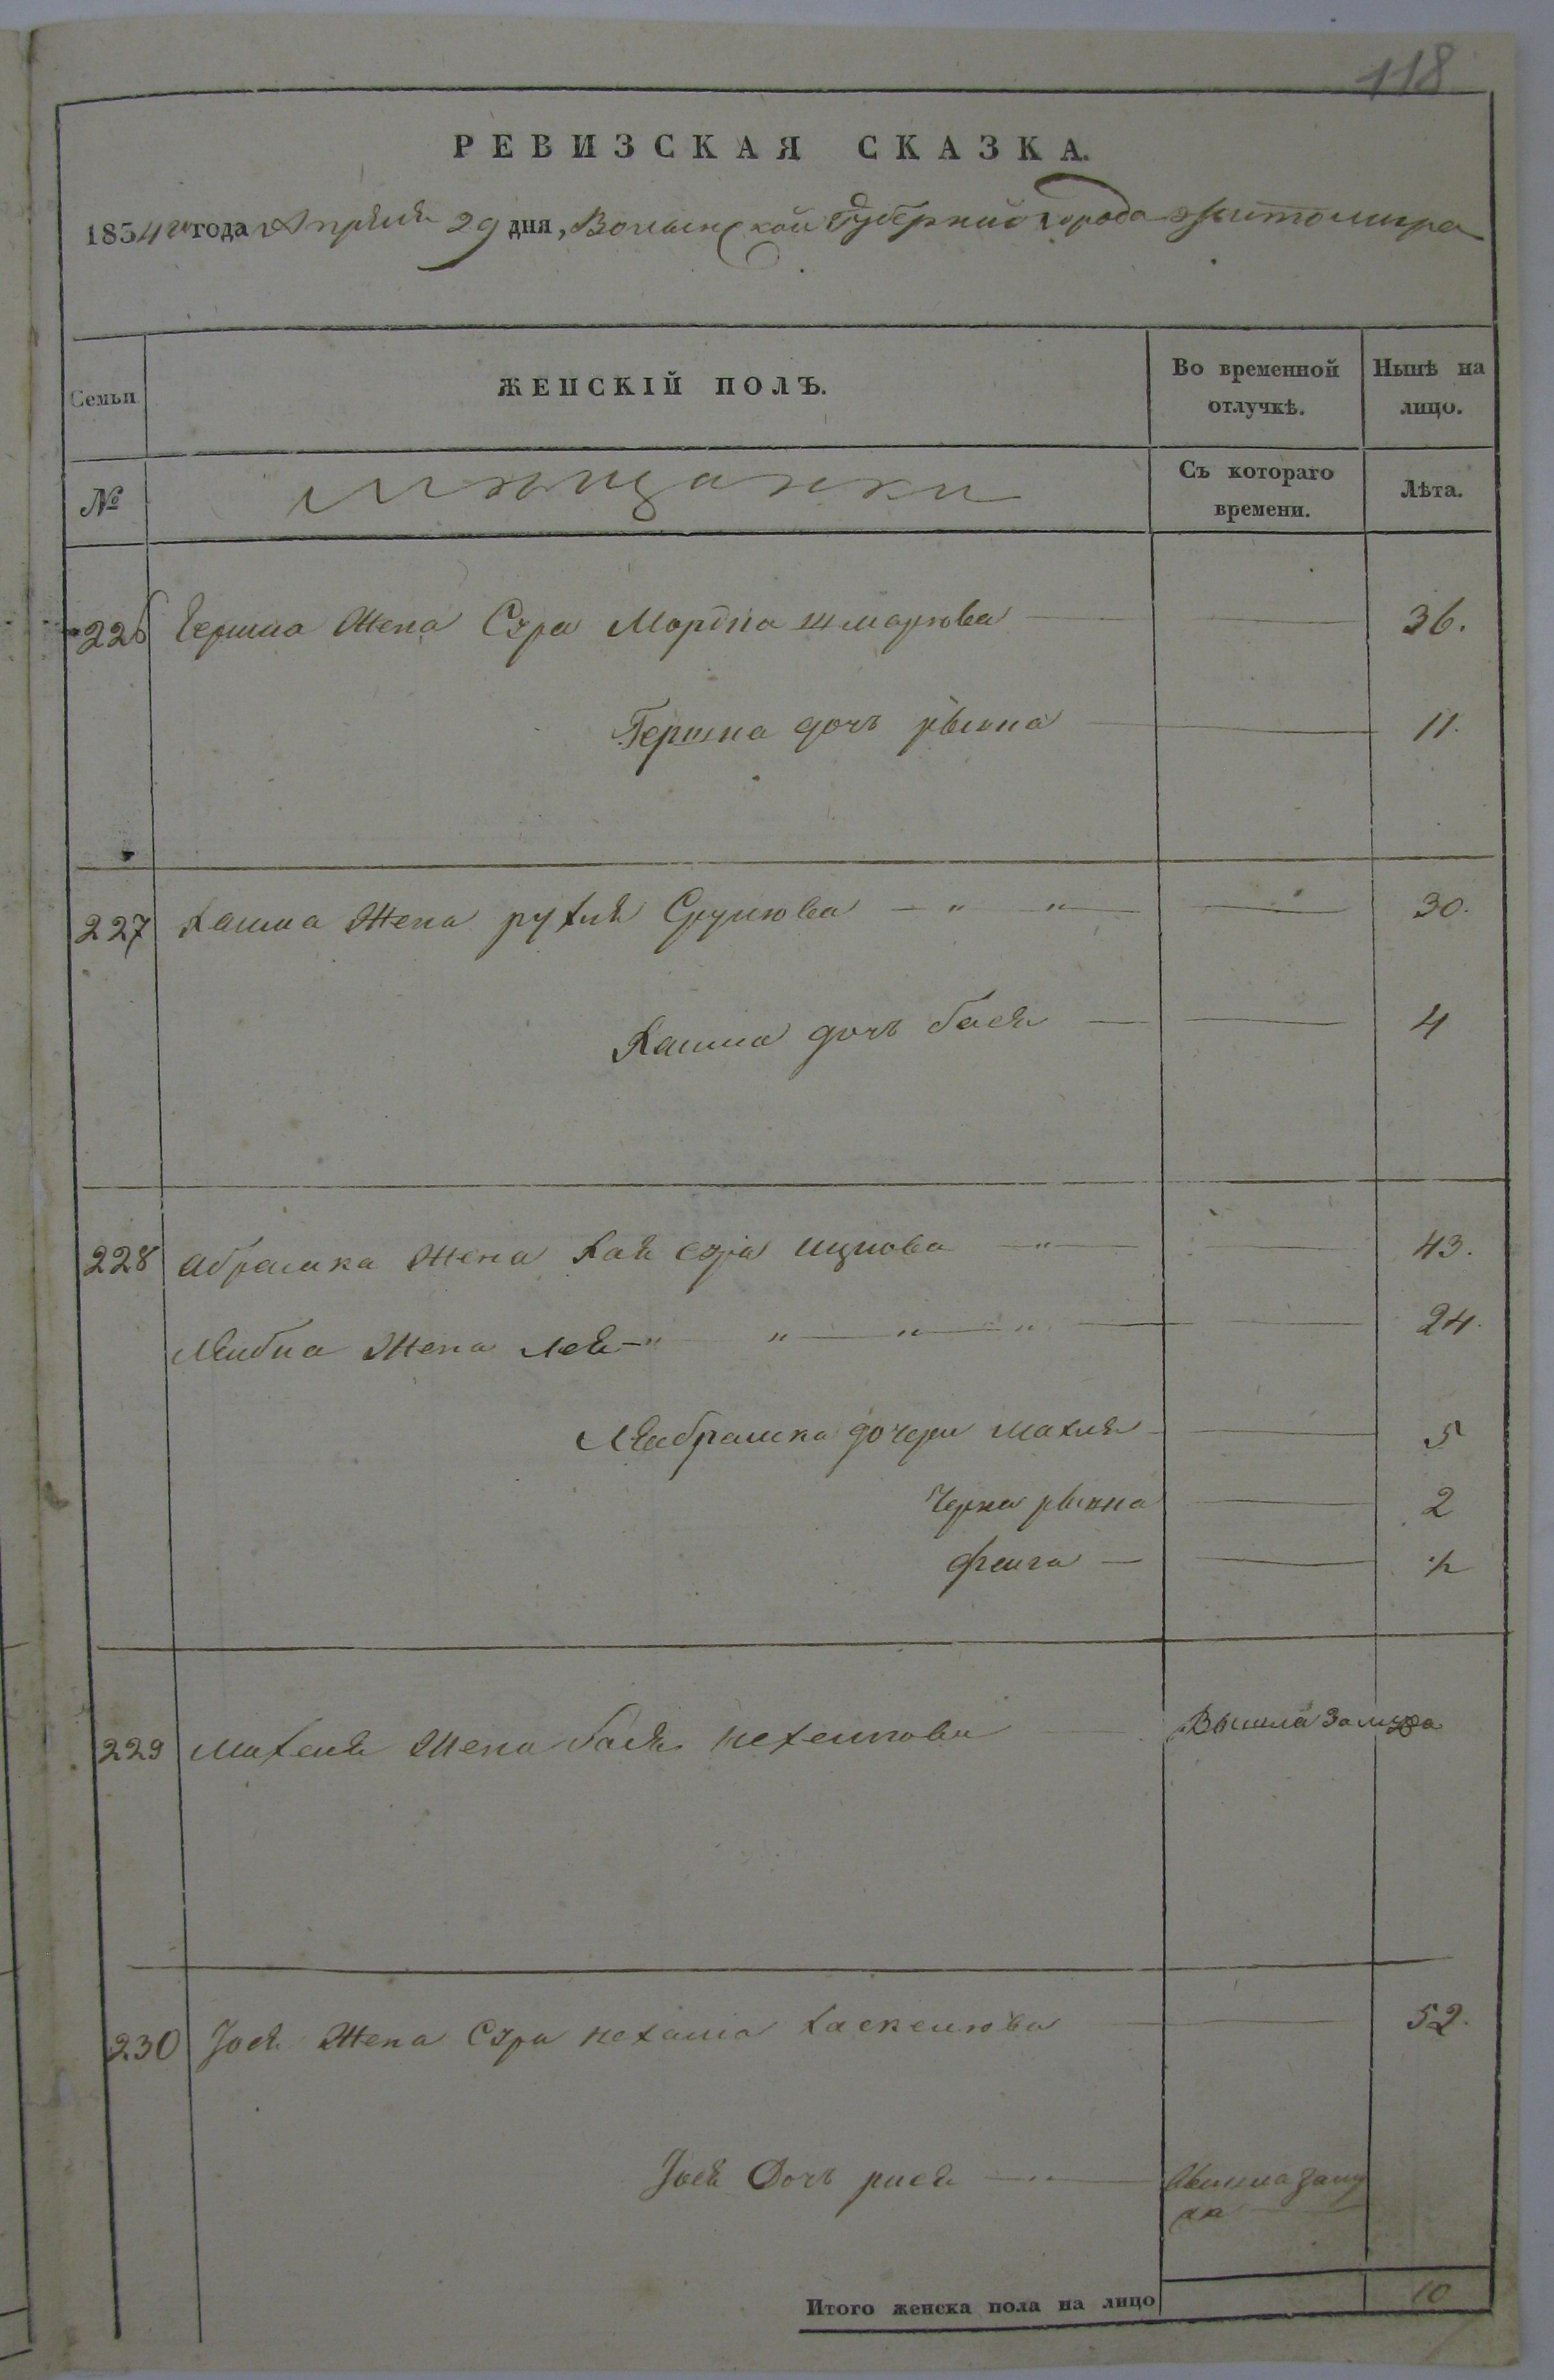 118
РЕВИЗСКАЯ СКАЗКА.
1834 го года Апреля 29 дня, Волынской Губернии города Житомира
Семьи
ЖЕНСКІЙ ПОЛЪ.
Во временной отлучкѣ.
Нынѣ на лицо.
№
Мѣщанки
Съ котораго времени.
Лѣта.
226 Гершка Жена Сура Мордка Шмарюва 36.
Гершка дочь рывка 11.
227 Хаима Жена рухля Сруліова — " — " — 30.
Хаима дочь бася 4
228 Абрамка Жена Хая сура ицкова — " — 43.
Лейбка Жена лея — " — " — " — " — 24.
Лейбрамка дочери махля 5
Черна рывка 2
фейга ½
229 Жена бася Вышла замужъ
230 Iося Жена Сура нехама Хаскелюва 52.
Iося Дочь рися — " — Вышла заму
жъ
Итого женска пола на лицо 10